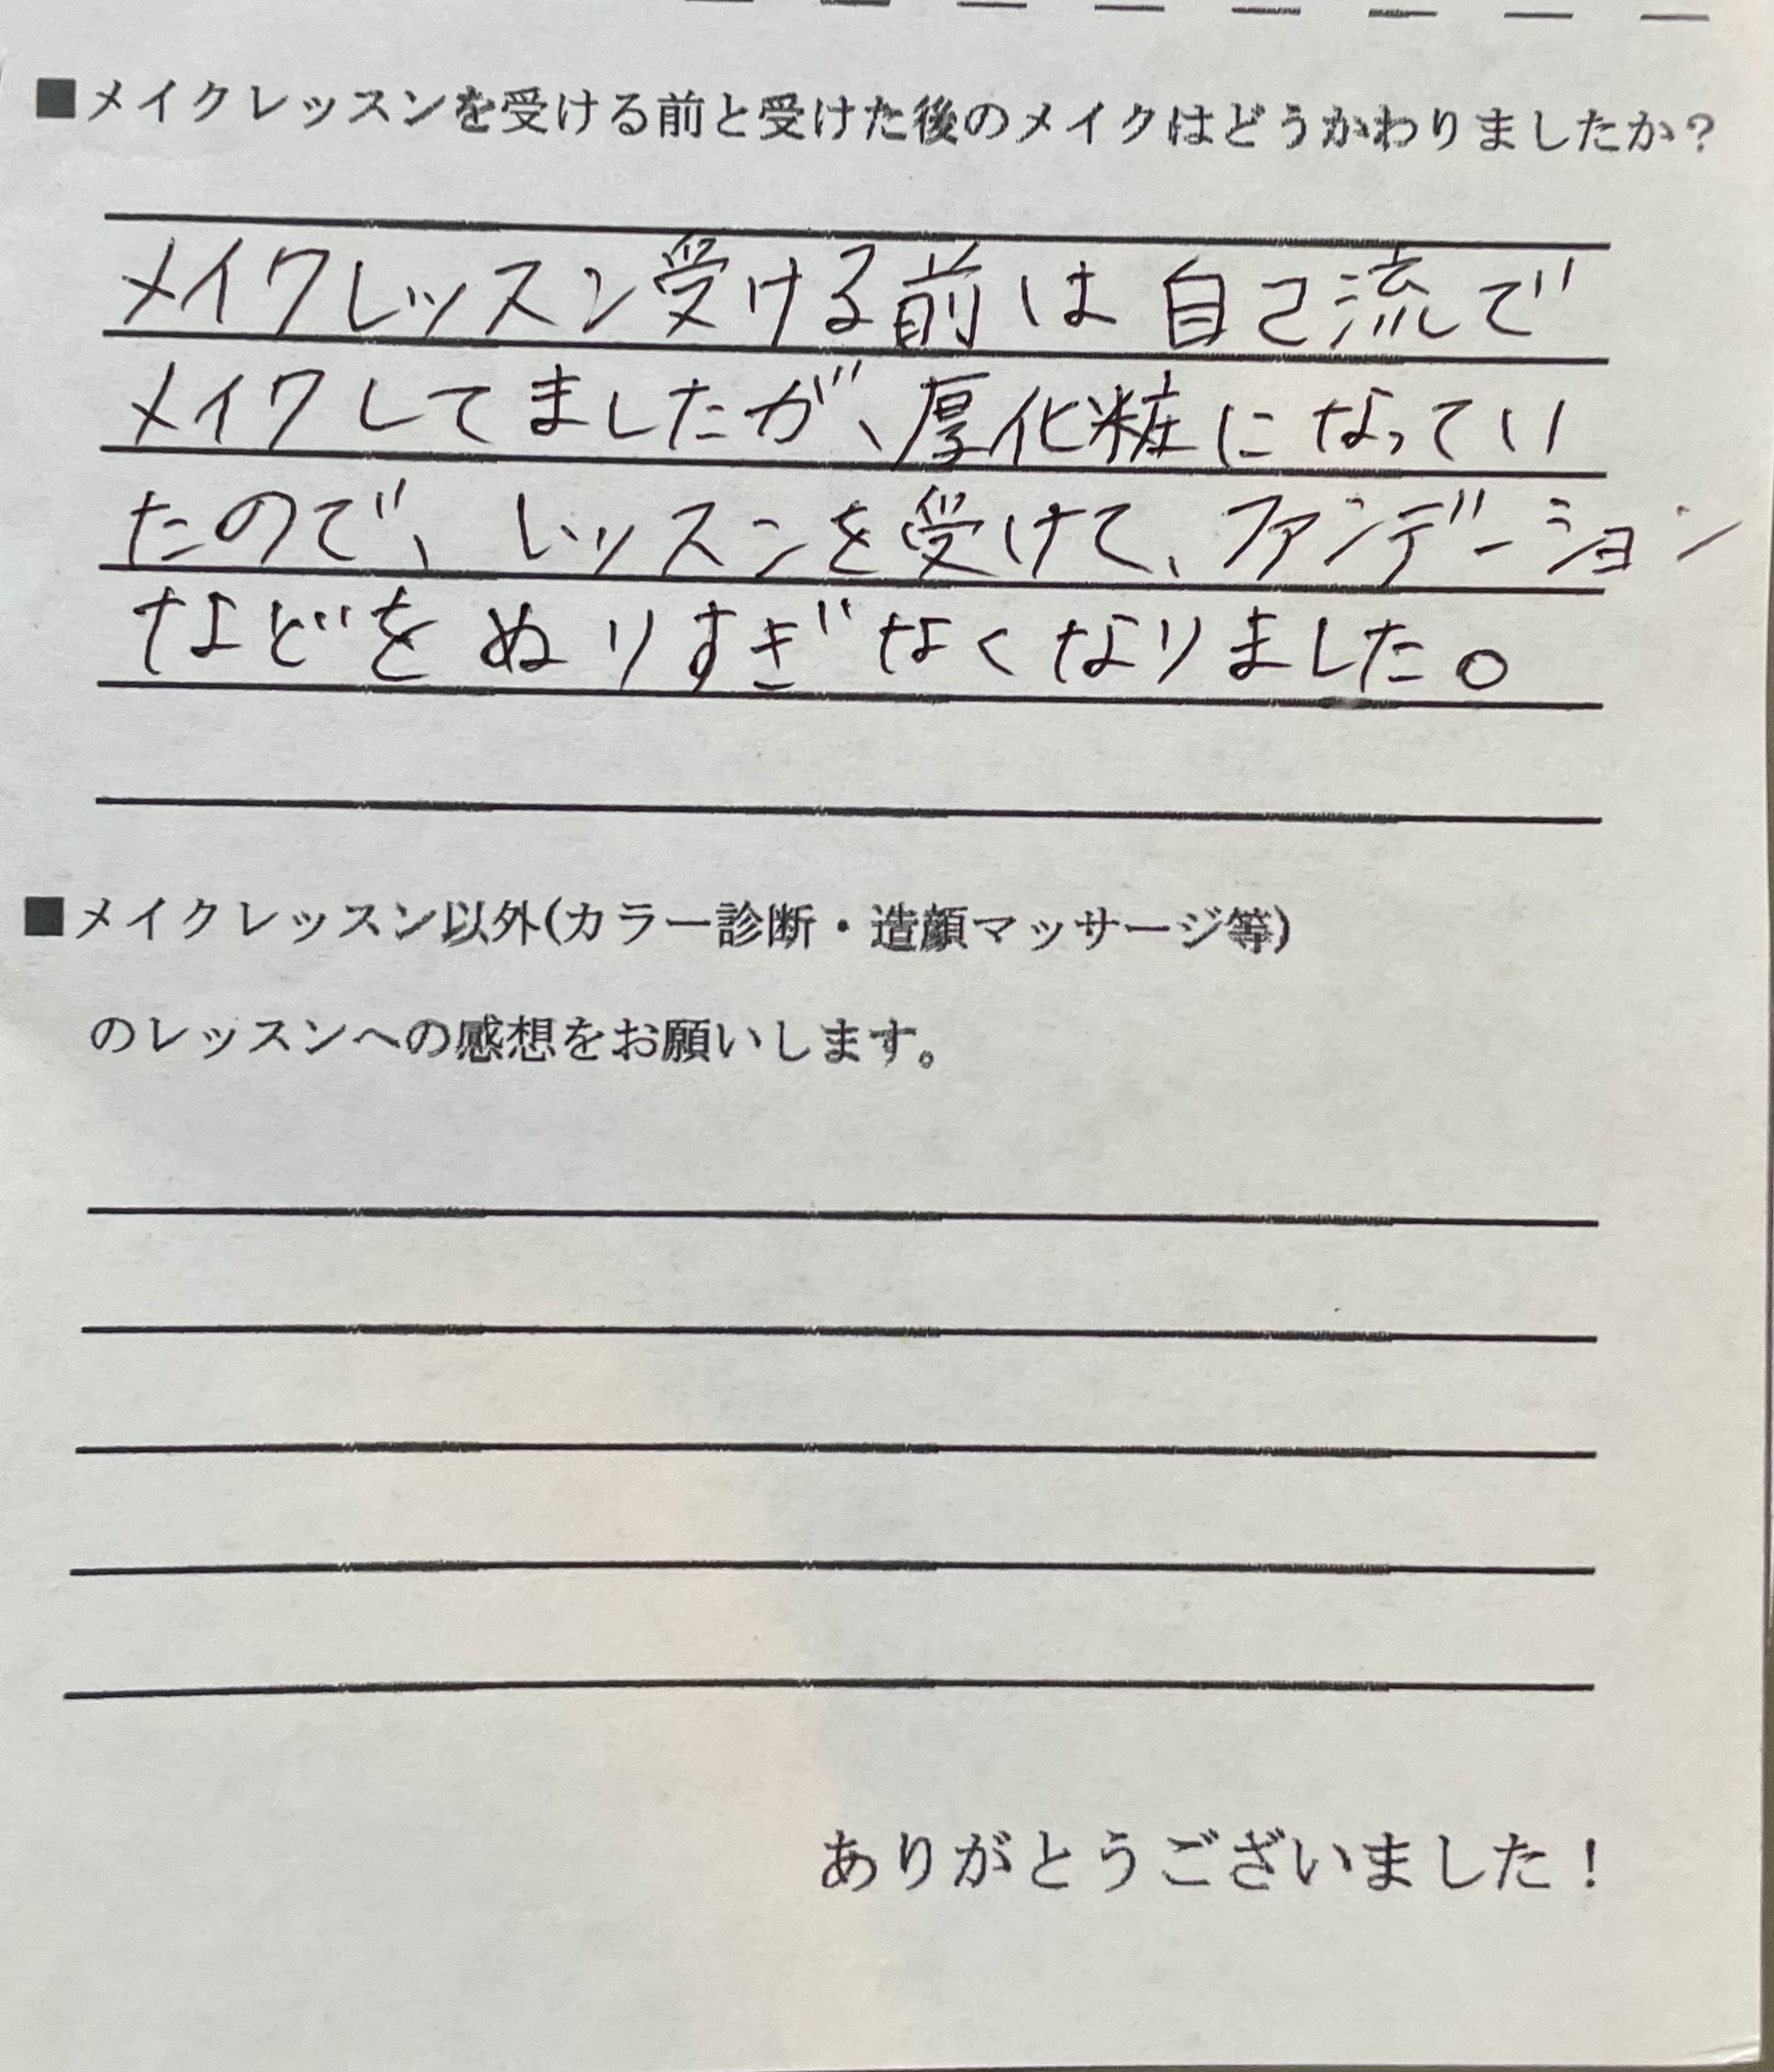 ■メイクレッスンを受ける前と受けた後のメイクはどうかわりましたか？
メイクレッスン受ける前は自己流で
メイクしてましたが、厚化粧になってい
たので、レッスンを受けて、ファンデーション
などをぬりすぎなくなりました。
■メイクレッスン以外(カラー診断・造顔マッサージ等)
のレッスンへの感想をお願いします。
ありがとうございました！